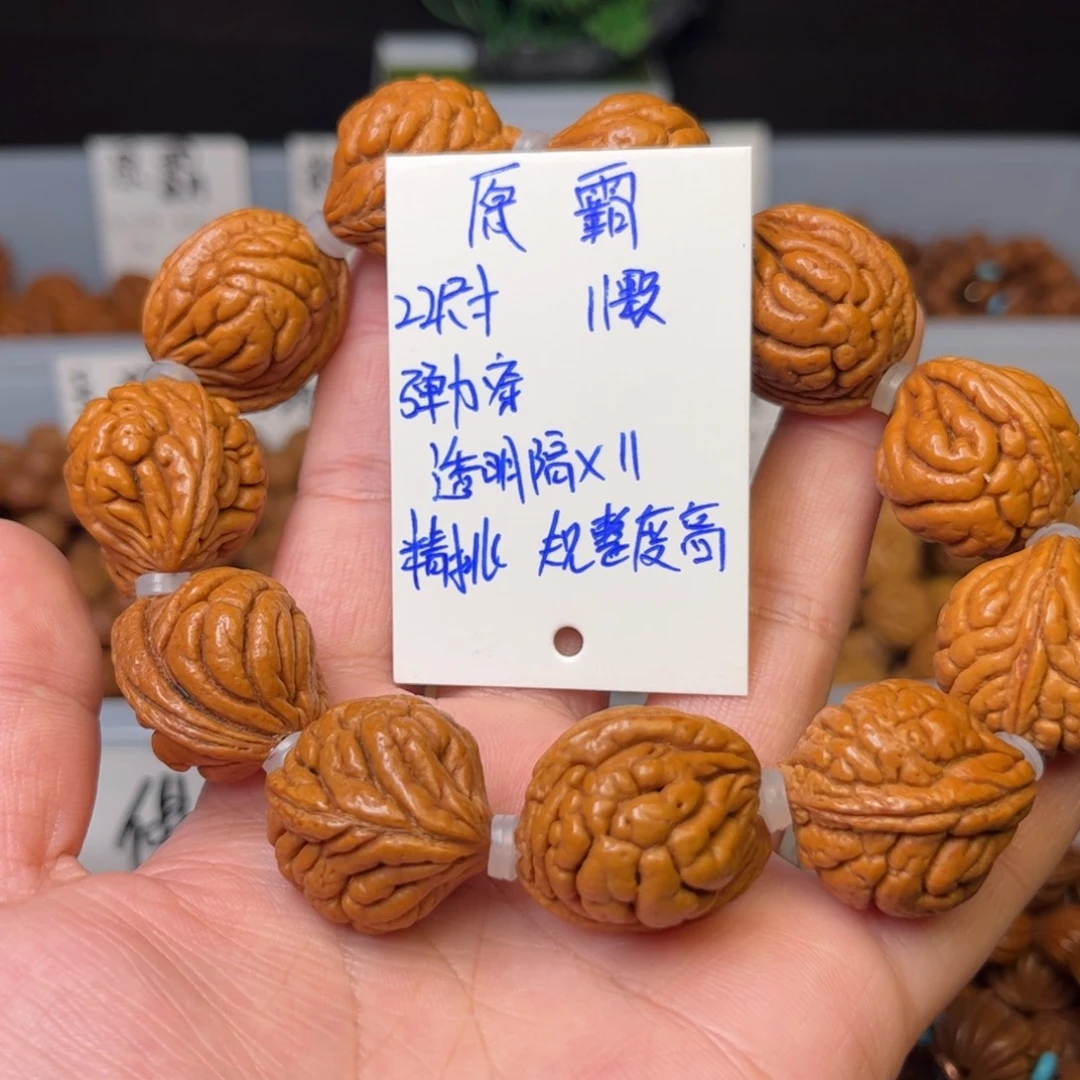 原霸
22尺寸 11颗
弹力穿
透明隔x11
精挑 规整度高